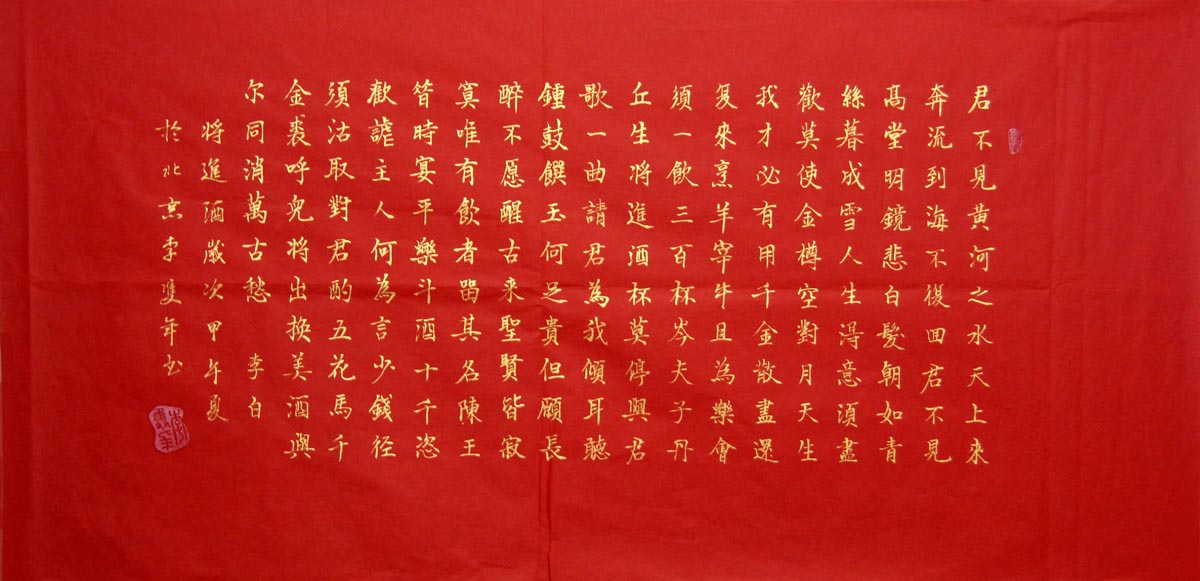 君不見黄河之水天上來
奔流到海不復回君不見
髙堂明鏡悲白髮朝如青
絲暮成雪人生得意須盡
歡莫使金樽空對月天生
我才必有用千金散盡還
复來烹羊宰牛且為樂會
須一飲三百杯岑夫子丹
丘生将進酒杯莫停與君
歌一曲請君為我傾耳聽
鍾鼓饌玉何足貴但願長
醉不愿醒古来聖賢皆寂
寞唯有飲者留其名陳王
昔時宴平樂斗酒十千恣
歡謔主人何為言少錢径
須沽取對君酌五花馬千
金裘呼兒将出換美酒與
尔同消萬古愁 李白
将進酒歲次甲午夏
於北京李雙年书